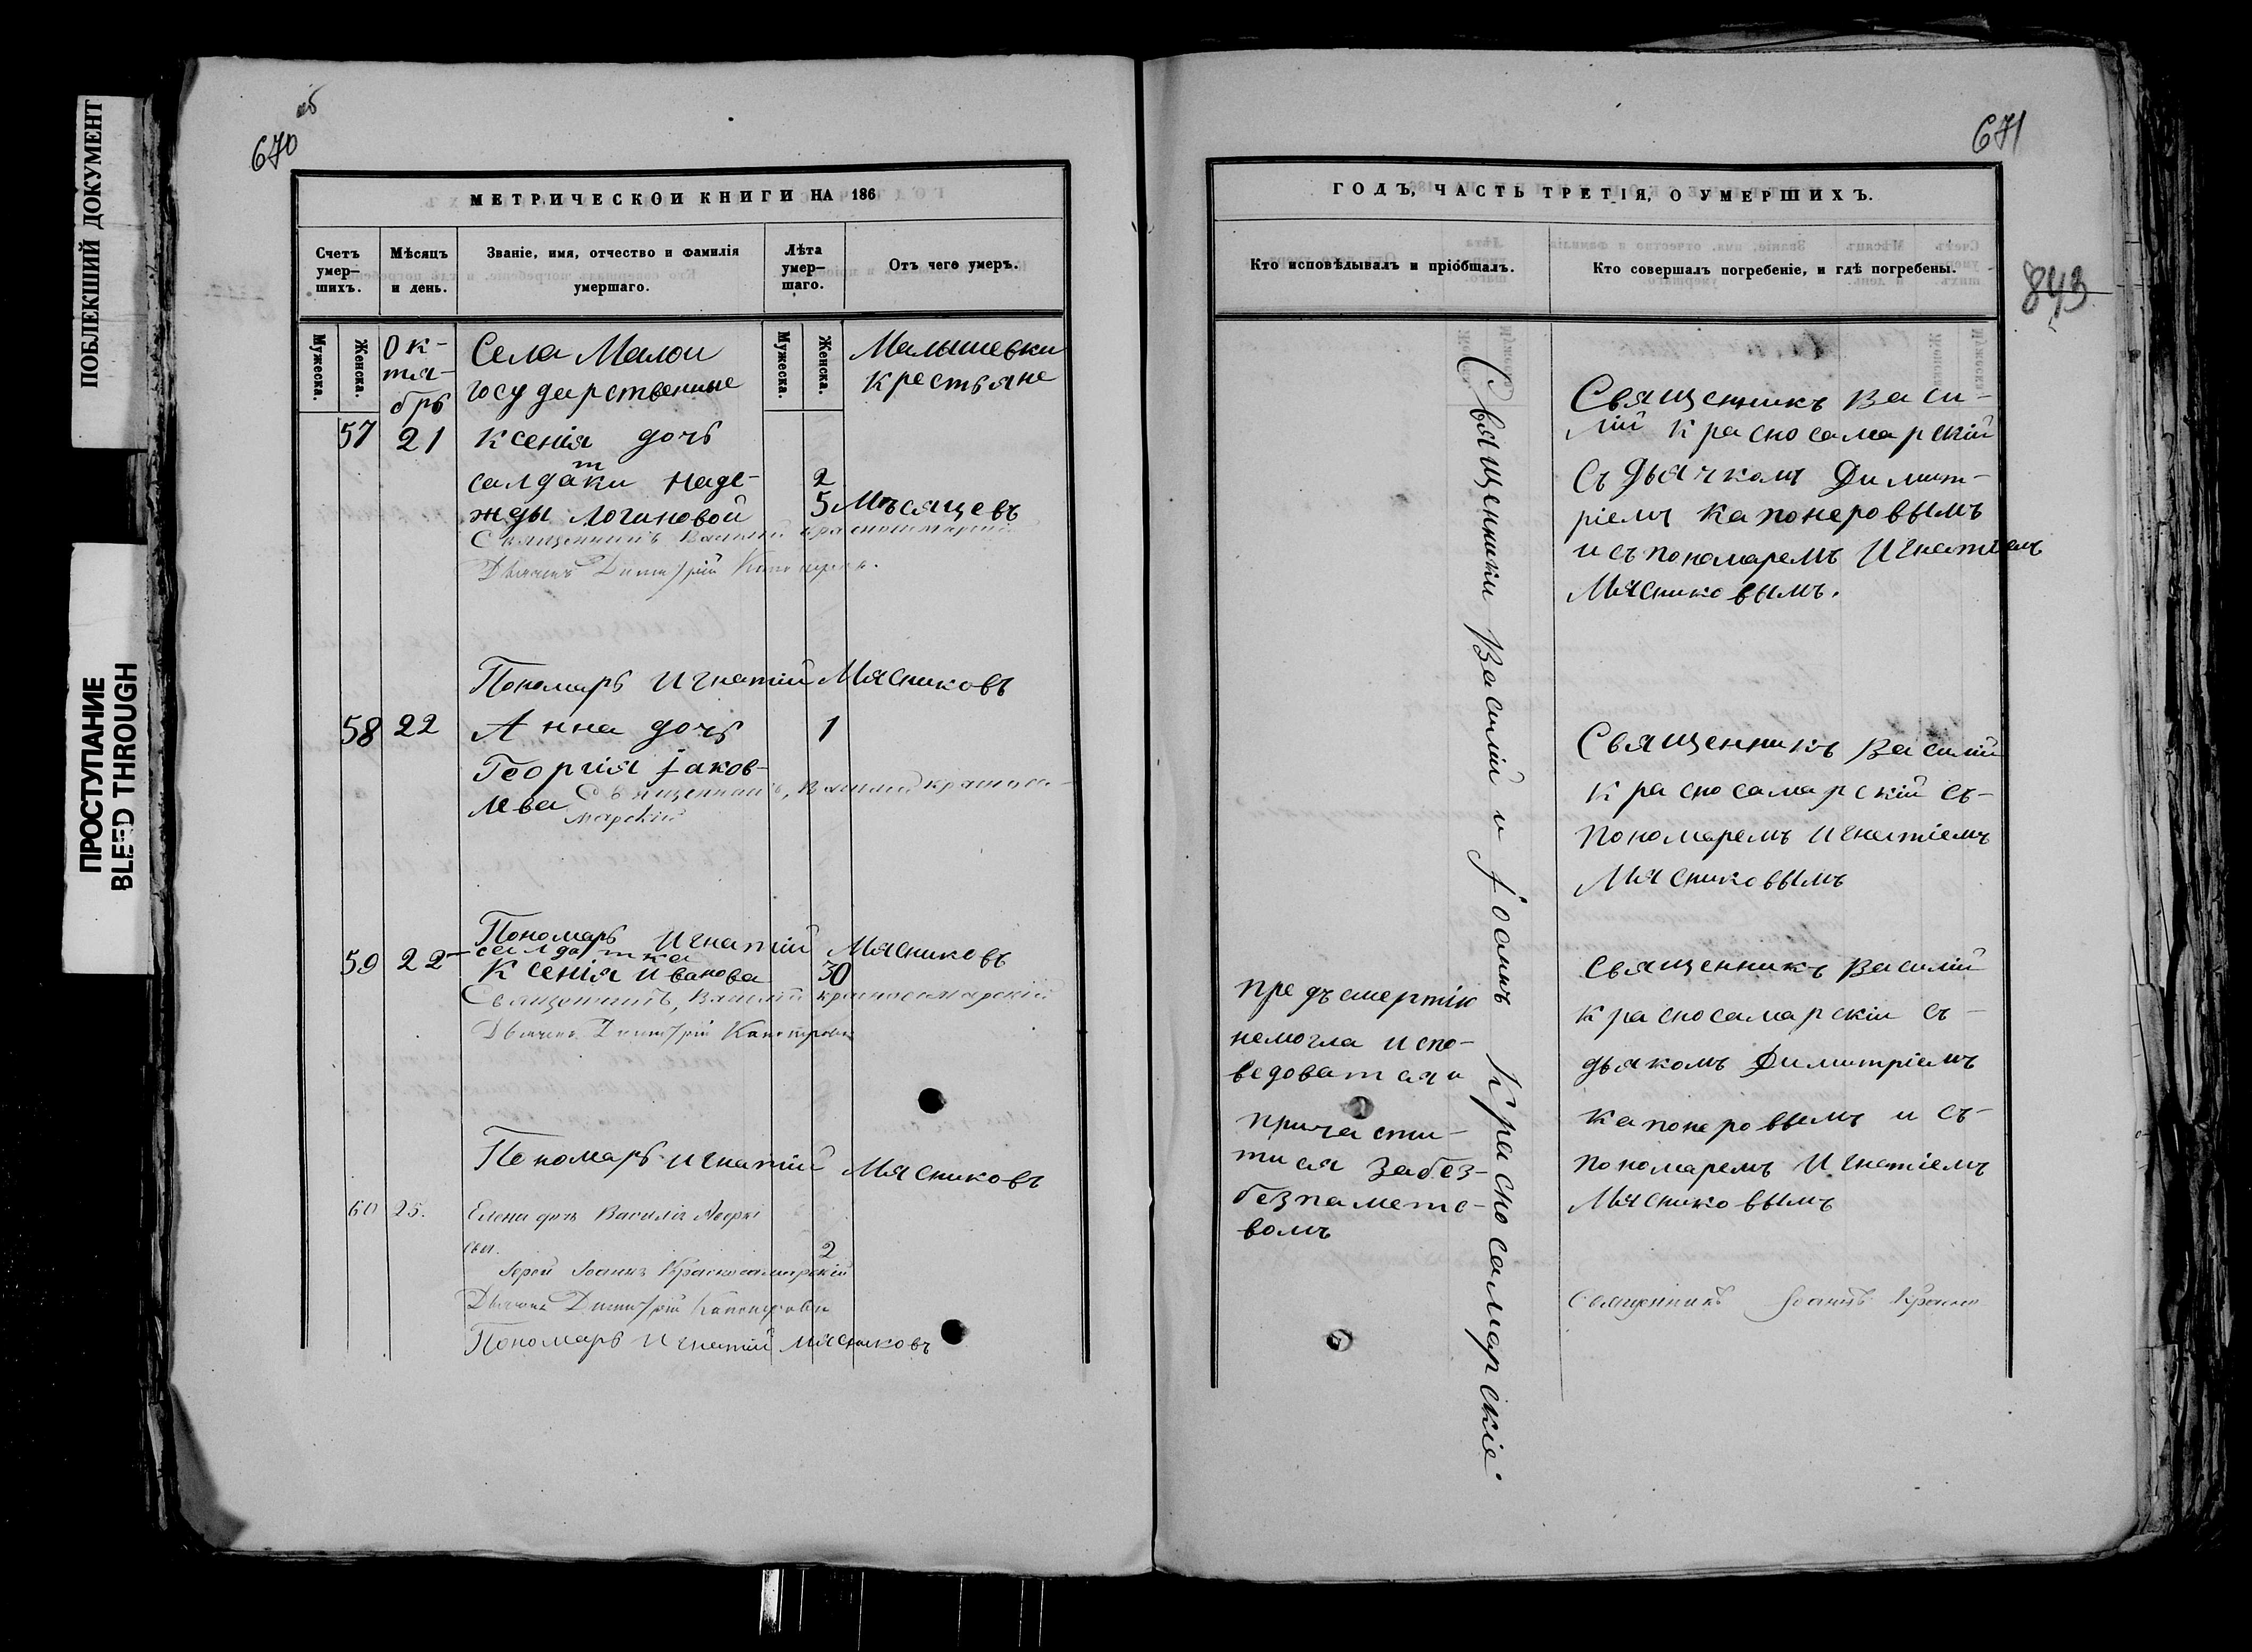 ПОБЛЕКШИЙ ДОКУМЕНТ
ПРОСТУПАНИЕ
BLEED THROUGH
об
670
МЕТРИЧЕСКОЙ КНИГИ НА 186
Счетъ умер-шихъ.
Мѣсяцъ и день.
Званіе, имя, отчество и фамилія умершаго.
Лѣта умер-шаго.
Отъ чего умеръ.
Мужеска.
Женска.
Мужеска.
Женска.
Ок-
тя-
брь
Села Малои Малышевки
государственные крестьяне
57 21 Ксенія дочь
салдатки Наде- 2
жды Логиновой 5 Мѣсяцевъ
Священникъ Василій Красносамарскій
Дьячекъ Димитрій Капонеровъ.
Пономарь Игнатій Мясниковъ
58 22 Анна дочь 1
Георгія Іаков-
лева Священникъ, Василій Красноса-
марскій
Пономарь Игнатій Мясниковъ
салдатка
59 22 Ксенія Иванова 30
Священникъ, Василій Красносамарскій
Дьячекъ Димитрій Капонеровъ
Пономарь Игнатій Мясниковъ
60 25. Елена дочь Василія
2
Іерей Іоаннъ Красносамарскій
Дьячекъ Димитрій Капонеровъ
Пономарь Игнатій Мясниковъ
671
843
ГОДЪ, ЧАСТЬ ТРЕТІЯ, О УМЕРШИХЪ.
Кто исповѣдывалъ и пріобщалъ.
Кто совершалъ погребеніе, и гдѣ погребены.
Священники Василій и Іоаннъ Красносамарскіе
Священникъ Васи-
лій Красносамарскій
съ Дьячкомъ Димит-
ріемъ Капонеровымъ
и съ пономаремъ Игнатіемъ
Мясниковымъ.
Священникъ Василій
Красносамарскій съ-
пономаремъ Игнатіемъ
Мясниковымъ
предъсмертію
немогла испо-
ведоватся и
причасти-
тися забез-
безпаметс-
вомъ
Священникъ Василій
Красносамарскіи съ-
дьякомъ Димитріемъ
Капонеровымъ и съ-
пономаремъ Игнатіемъ
Мясниковымъ
Священникъ Іоаннъ Красно